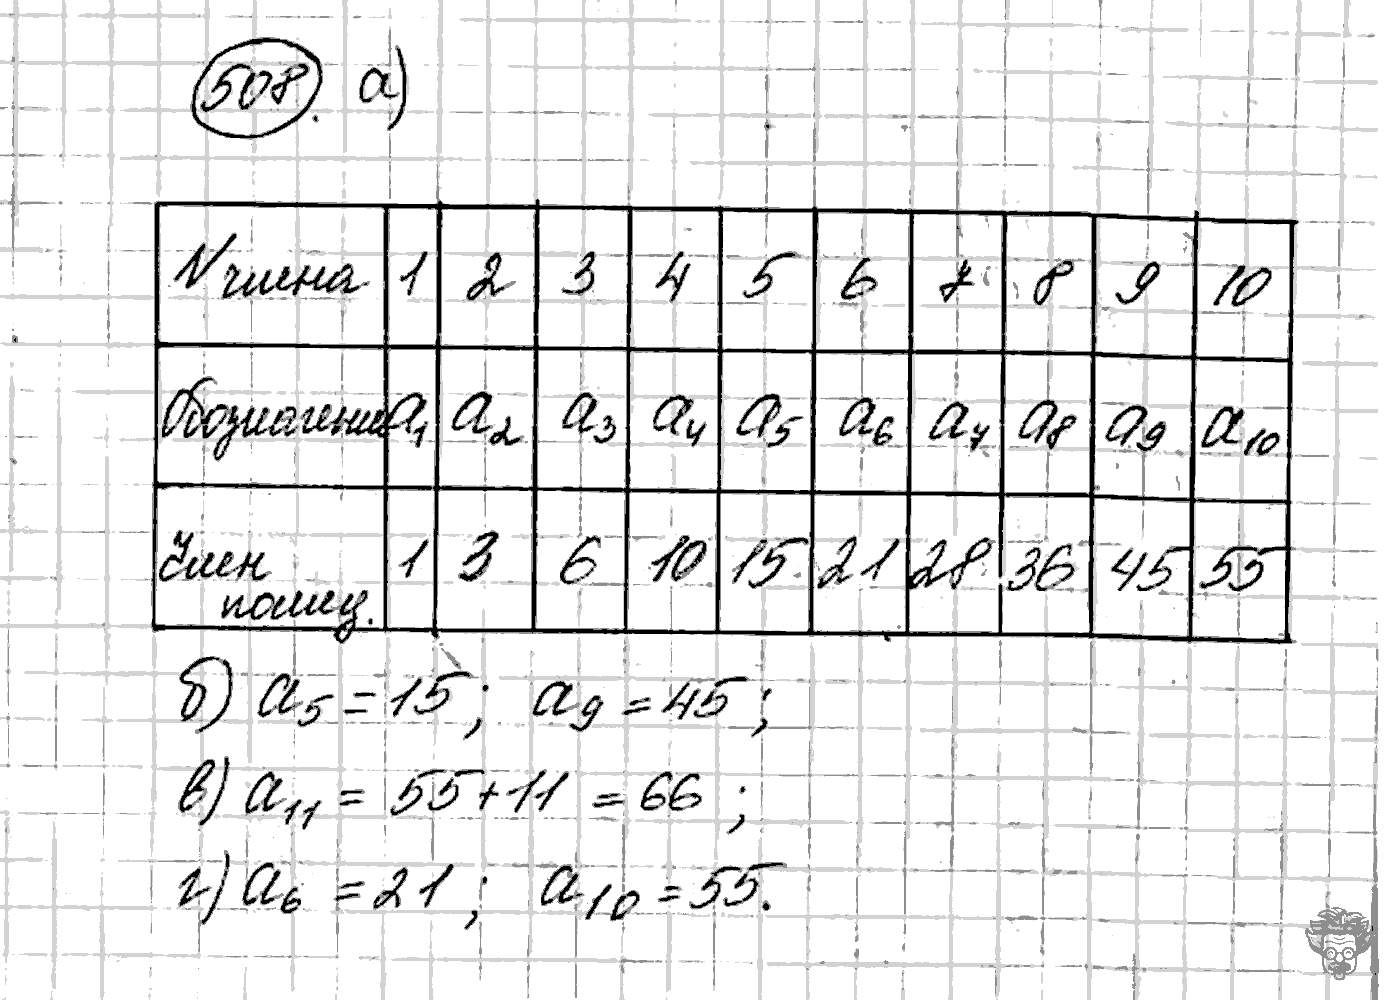 508. а)
N члена 1 2 3 4 5 6 7 8 9 10
Обозначение a₁ a₂ a₃ a₄ a₅ a₆ a₇ a₈ a₉ a₁₀
Член 1 3 6 10 15 21 28 36 45 55
послед.
б) a₅ = 15; a₉ = 45;
в) a₁₁ = 55 + 11 = 66;
г) a₆ = 21; a₁₀ = 55.